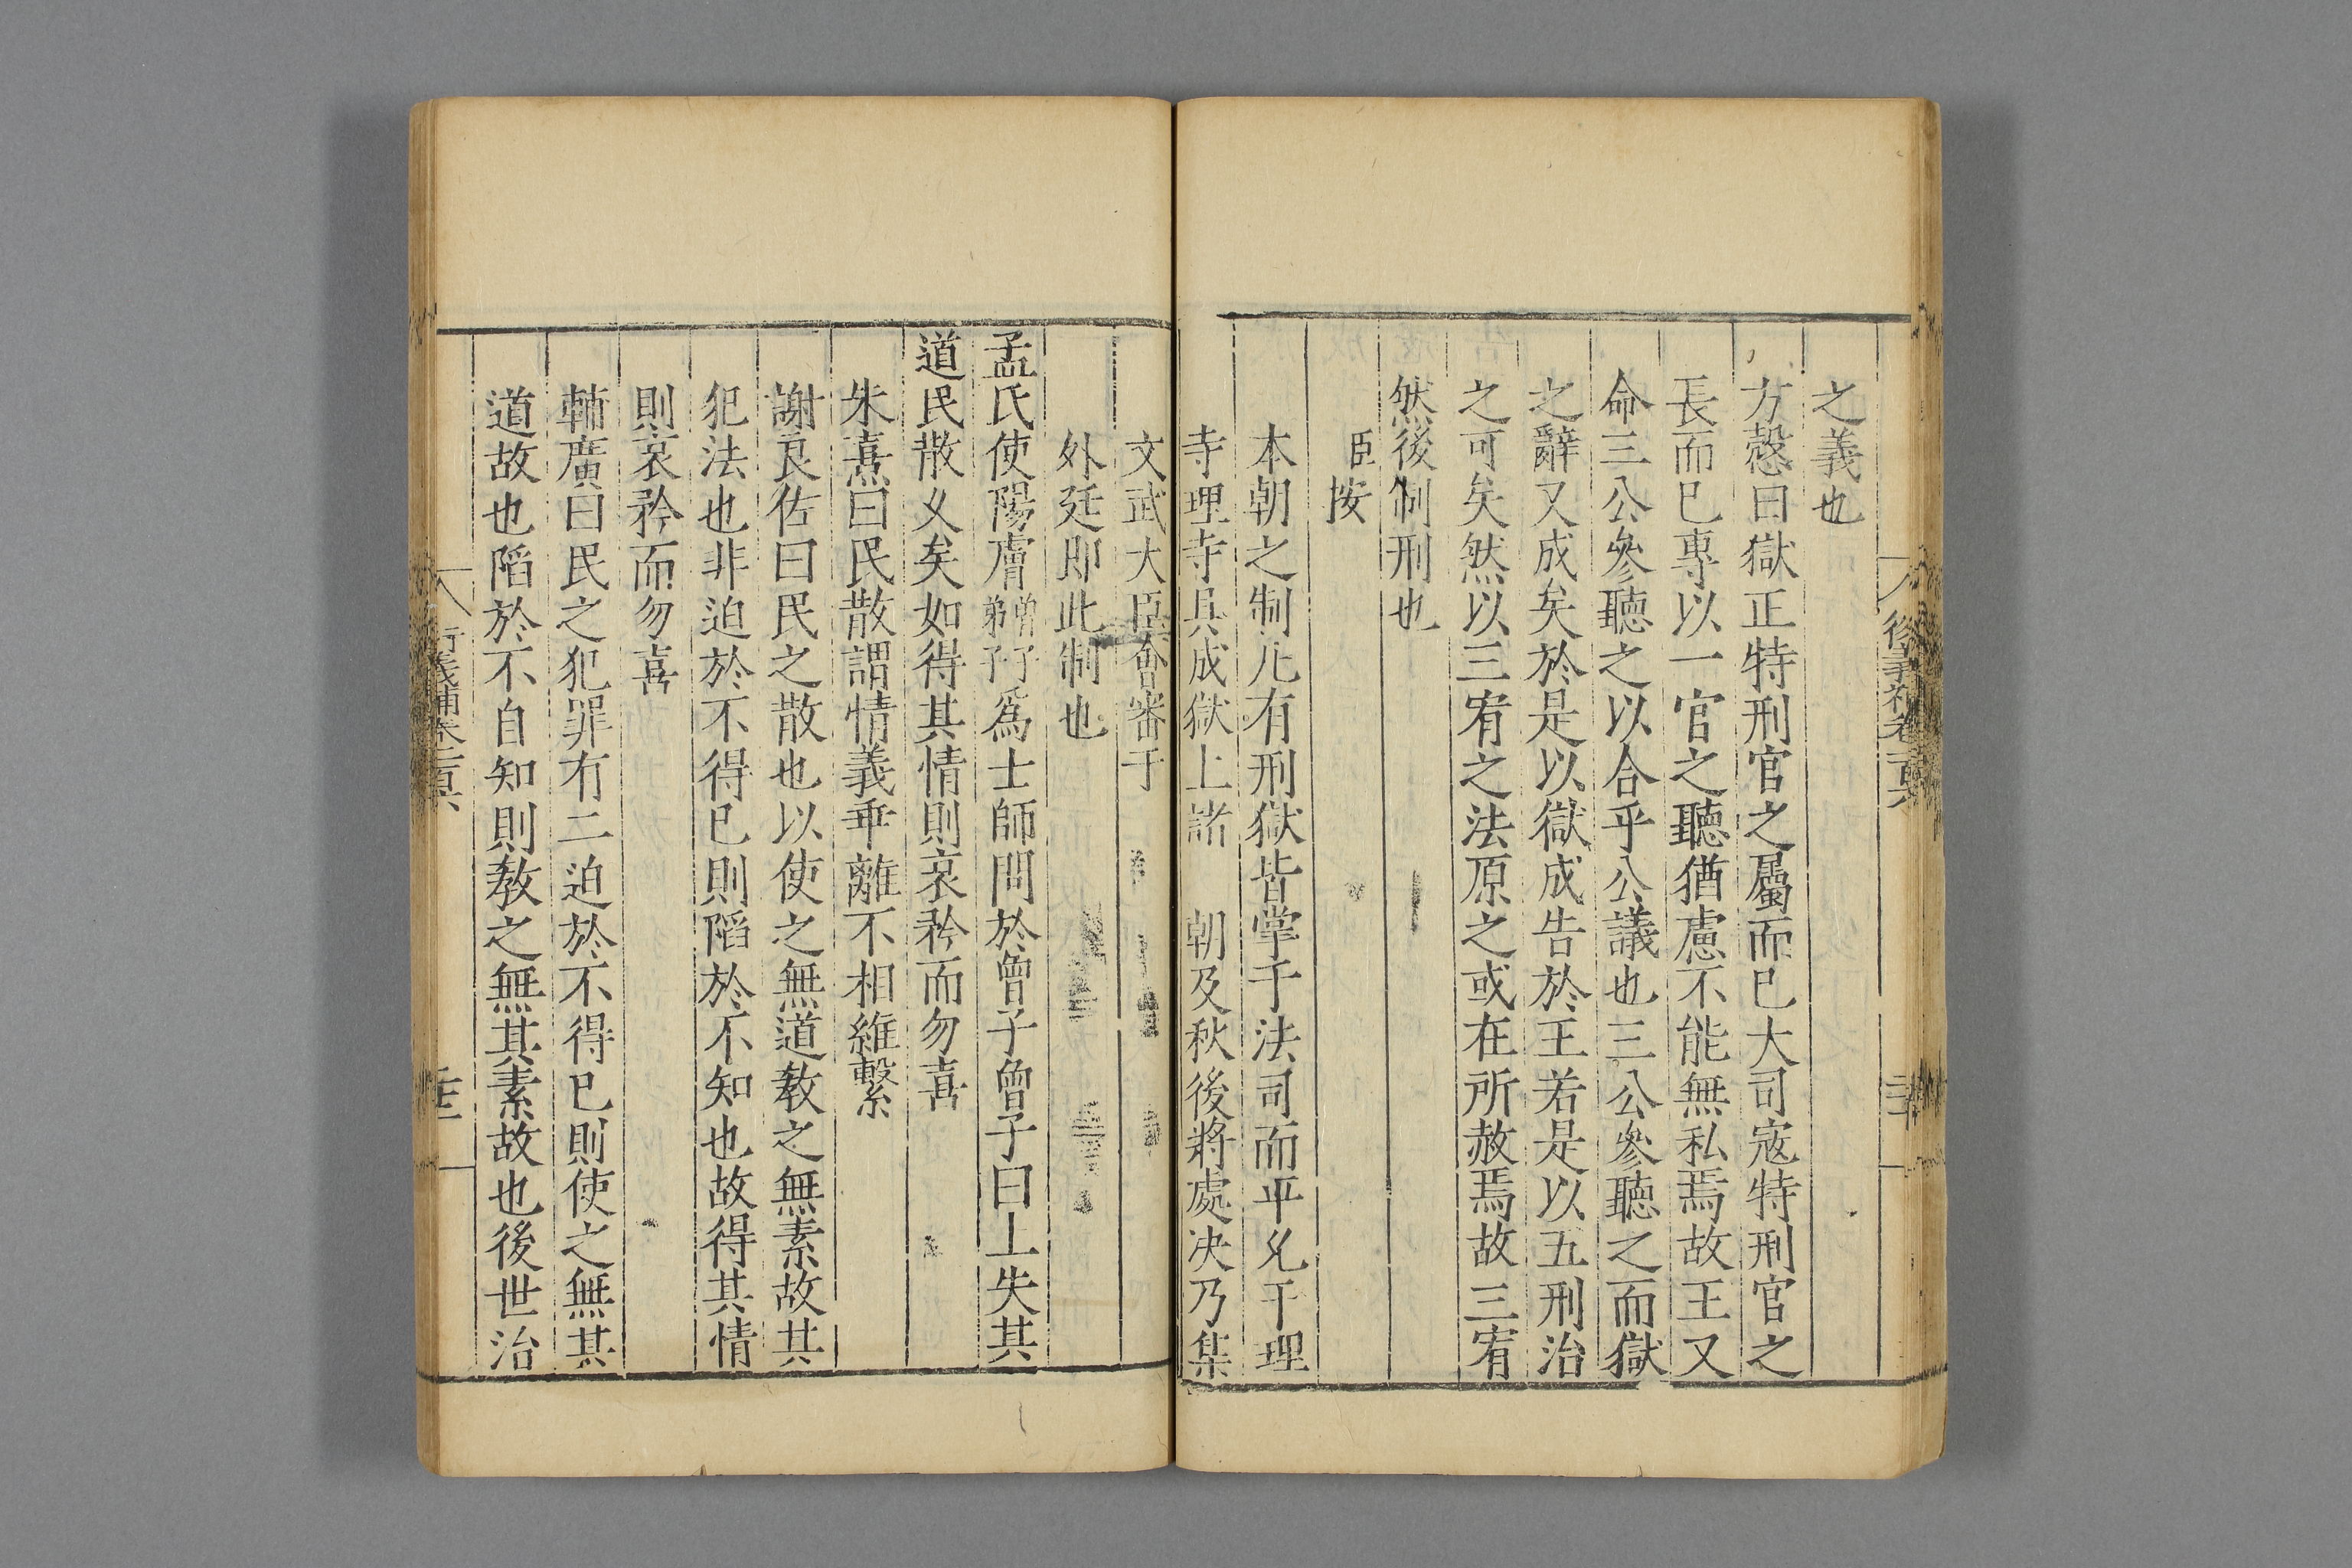 之義也
方慤曰獄正特刑官之屬而已大司寇特刑官之
長而已專以一官之聽猶慮不能無私焉故王又
命三公參聽之以合乎公議也三公參聽之而獄
之辭又成矣於是以獄成告於王若是以五刑治
之可矣然以三宥之法原之或在所赦焉故三宥
然後制刑也
臣按
本朝之制凡有刑獄皆掌于法司而平允于理
寺理寺具成獄上諸 朝及秋後將處決乃集
文武大臣會審于
外廷即此制也
孟氏使陽膚曾子弟子爲士師問於曾子曾子曰上失其
道民散久矣如得其情則哀矜而勿喜
朱熹曰民散謂情義乖離不相維繫
謝良佐曰民之散也以使之無道教之無素故其
犯法也非迫於不得已則陷於不知也故得其情
則哀矜而勿喜
輔廣曰民之犯罪有二迫於不得已則使之無其
道故也陷於不自知則教之無其素故也後世治